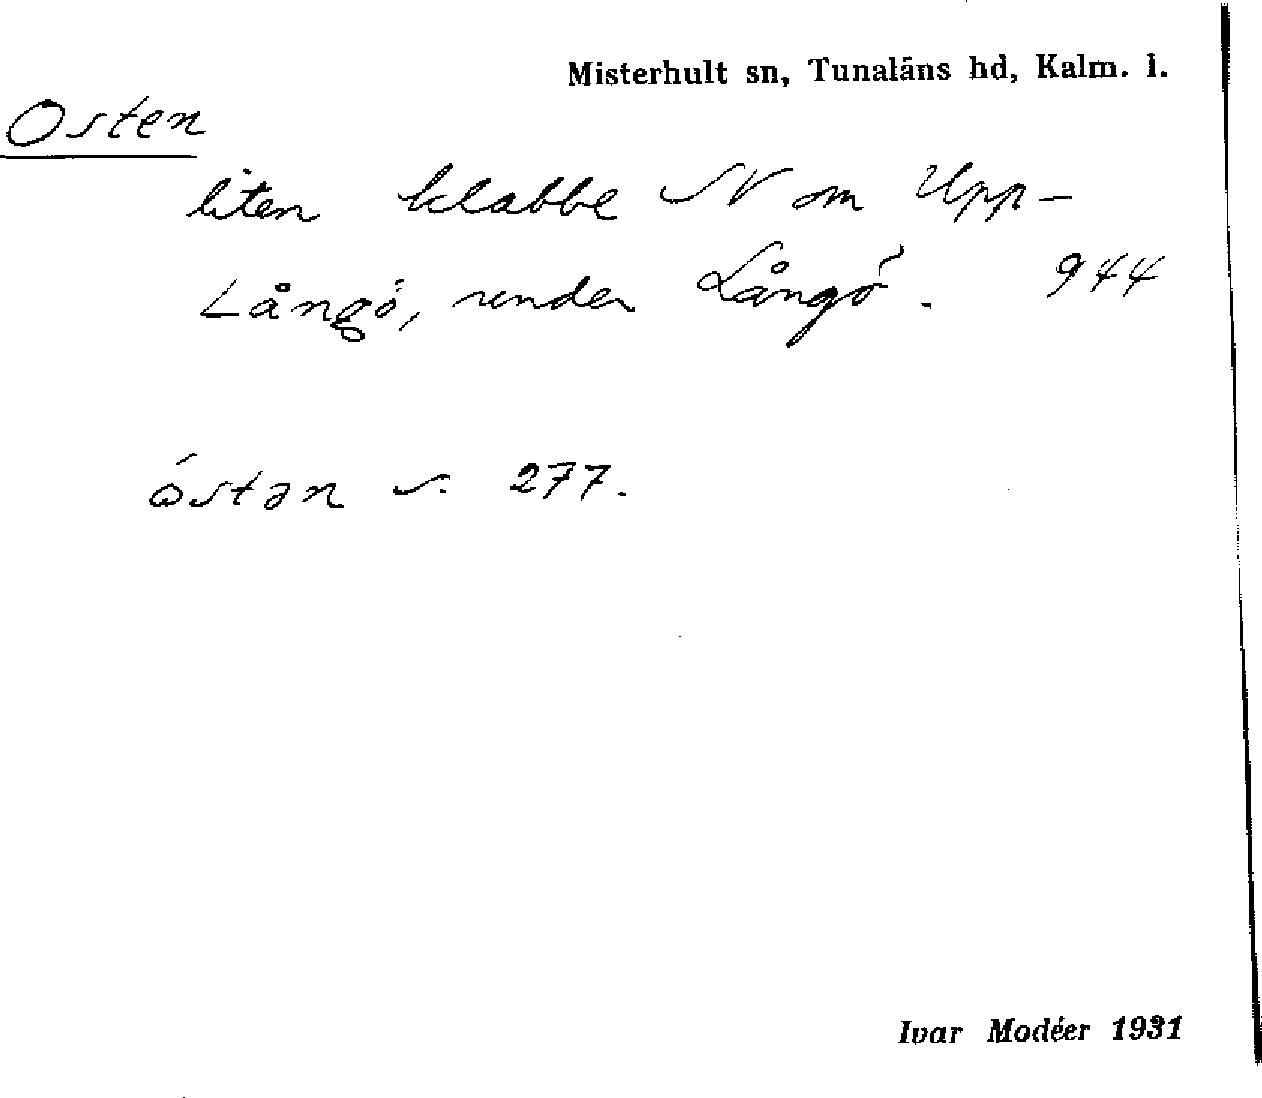 Misterhult sn, Tunaläns hd, Kalm. l.
Osten
liten klabbe N om Upp-
Långö, under Långö. 944
óstən s. 277.
Ivar Modéer 1931